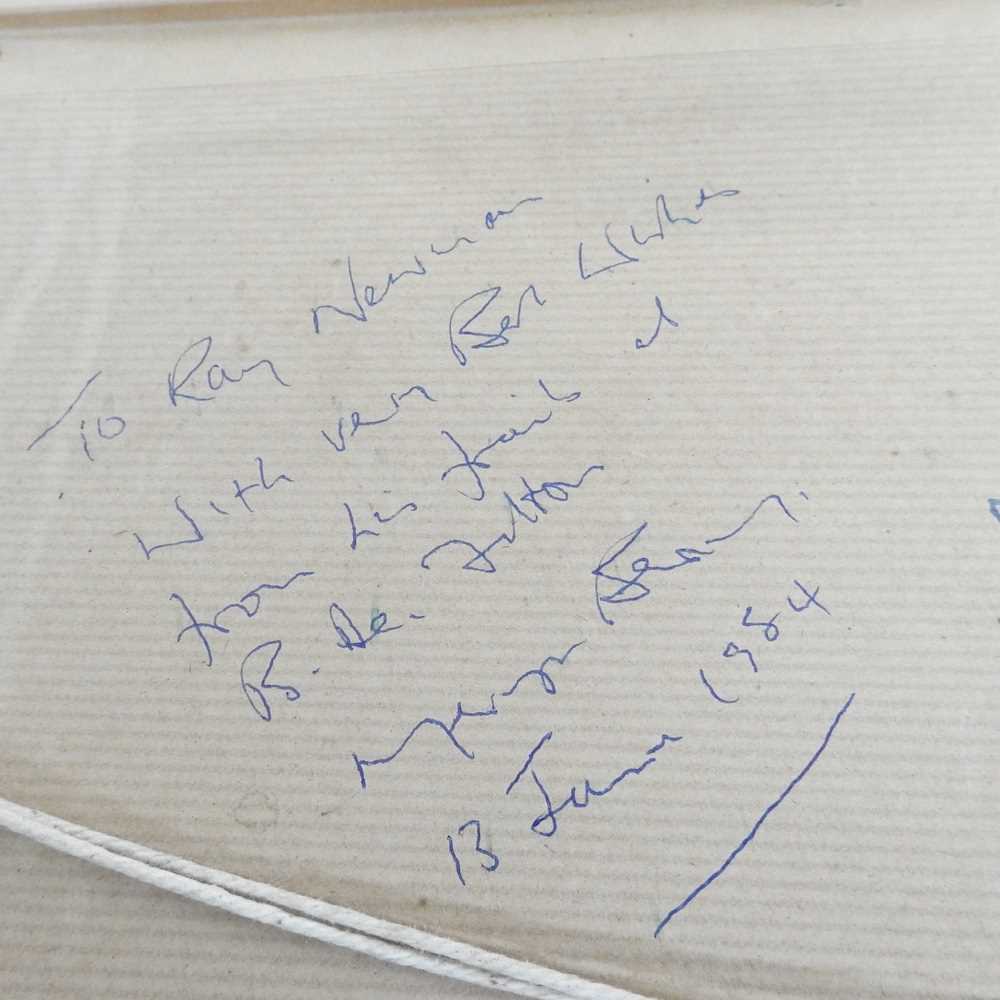 To Ray Newman
With very Best Wishes
from his friends at
B. Ae. Filton
13 June 1984